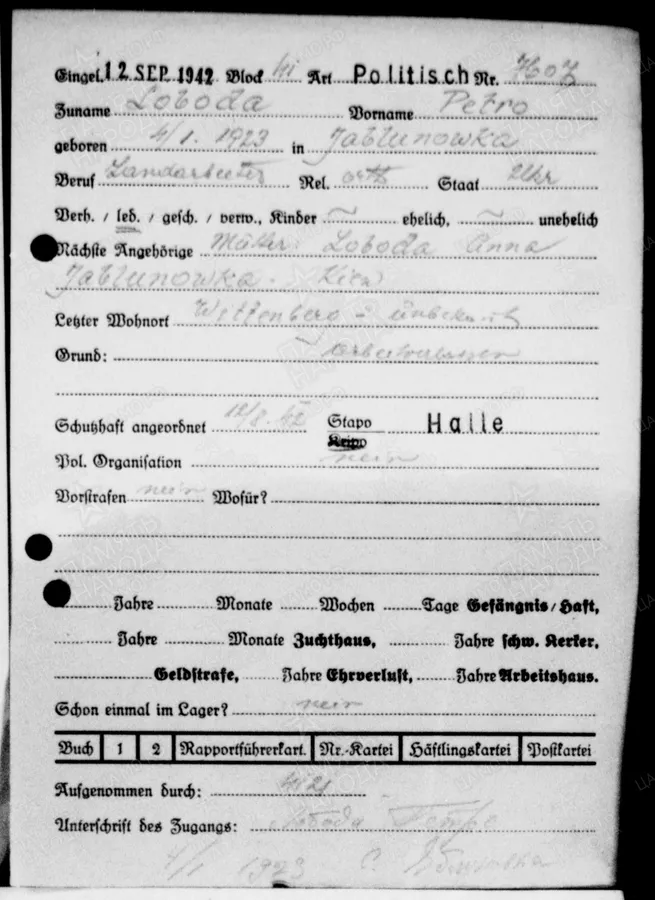 Eingel. 12 SEP. 1942 Block 41 Art Politisch Nr. 7607
Zuname Loboda Vorname Petro
geboren 4/1. 1923 in Jablunowka
Beruf Landarbeiter Rel. orth Staat Ukr
Verh. / led. / gesch. / verw., Kinder ~ ehelich, ~ unehelich
Nächste Angehörige Mutter Loboda Anna
Jablunowka. Kiew
Letzter Wohnort Wittenberg - unbekannt
Grund: Arbeitverlassen
Schutzhaft angeordnet 12/8. 42 Stapo Halle
Kripo
Pol. Organisation nein
Vorstrafen nein Wofür?
Jahre Monate Wochen Tage Gefängnis/Haft,
Jahre Monate Zuchthaus, Jahre schw. Kerker,
Geldstrafe, Jahre Ehrverlust, Jahre Arbeitshaus.
Schon einmal im Lager? nein
Buch 1 2 Rapportführerkart. Nr.-Kartei Häftlingskartei Postkartei
Aufgenommen durch:
Unterschrift des Zugangs: Лобода Петро
4/1 1923 с.